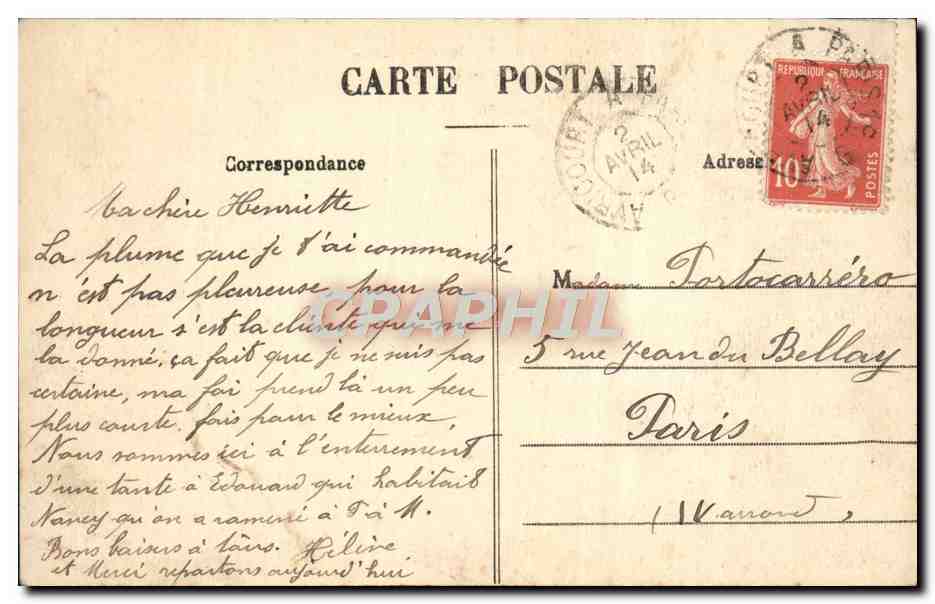 CARTE POSTALE
Correspondance
Ma chère Henriette
La plume que je t'ai commandée
n'est pas pleureuse, pour la
longueur s'est la cliente qui me
la donné, ça fait que je ne suis pas
certaine, ma foi prend là un peu
plus courte, fais pour le mieux.
Nous sommes ici à l'enterrement
d'une tante à Edouard qui habitait
Nancy qu'on a ramené à F à M.
Bons baisers à tous. Hélène
et Merci repartons aujourd'hui
Adresse
Madame Portocarréro
5 rue Jean du Bellay
Paris
(IV arrond
REPUBLIQUE FRANÇAISE
10c
POSTES
AVRICOURT A PARIS
2
AVRIL
14
CPAPHIL